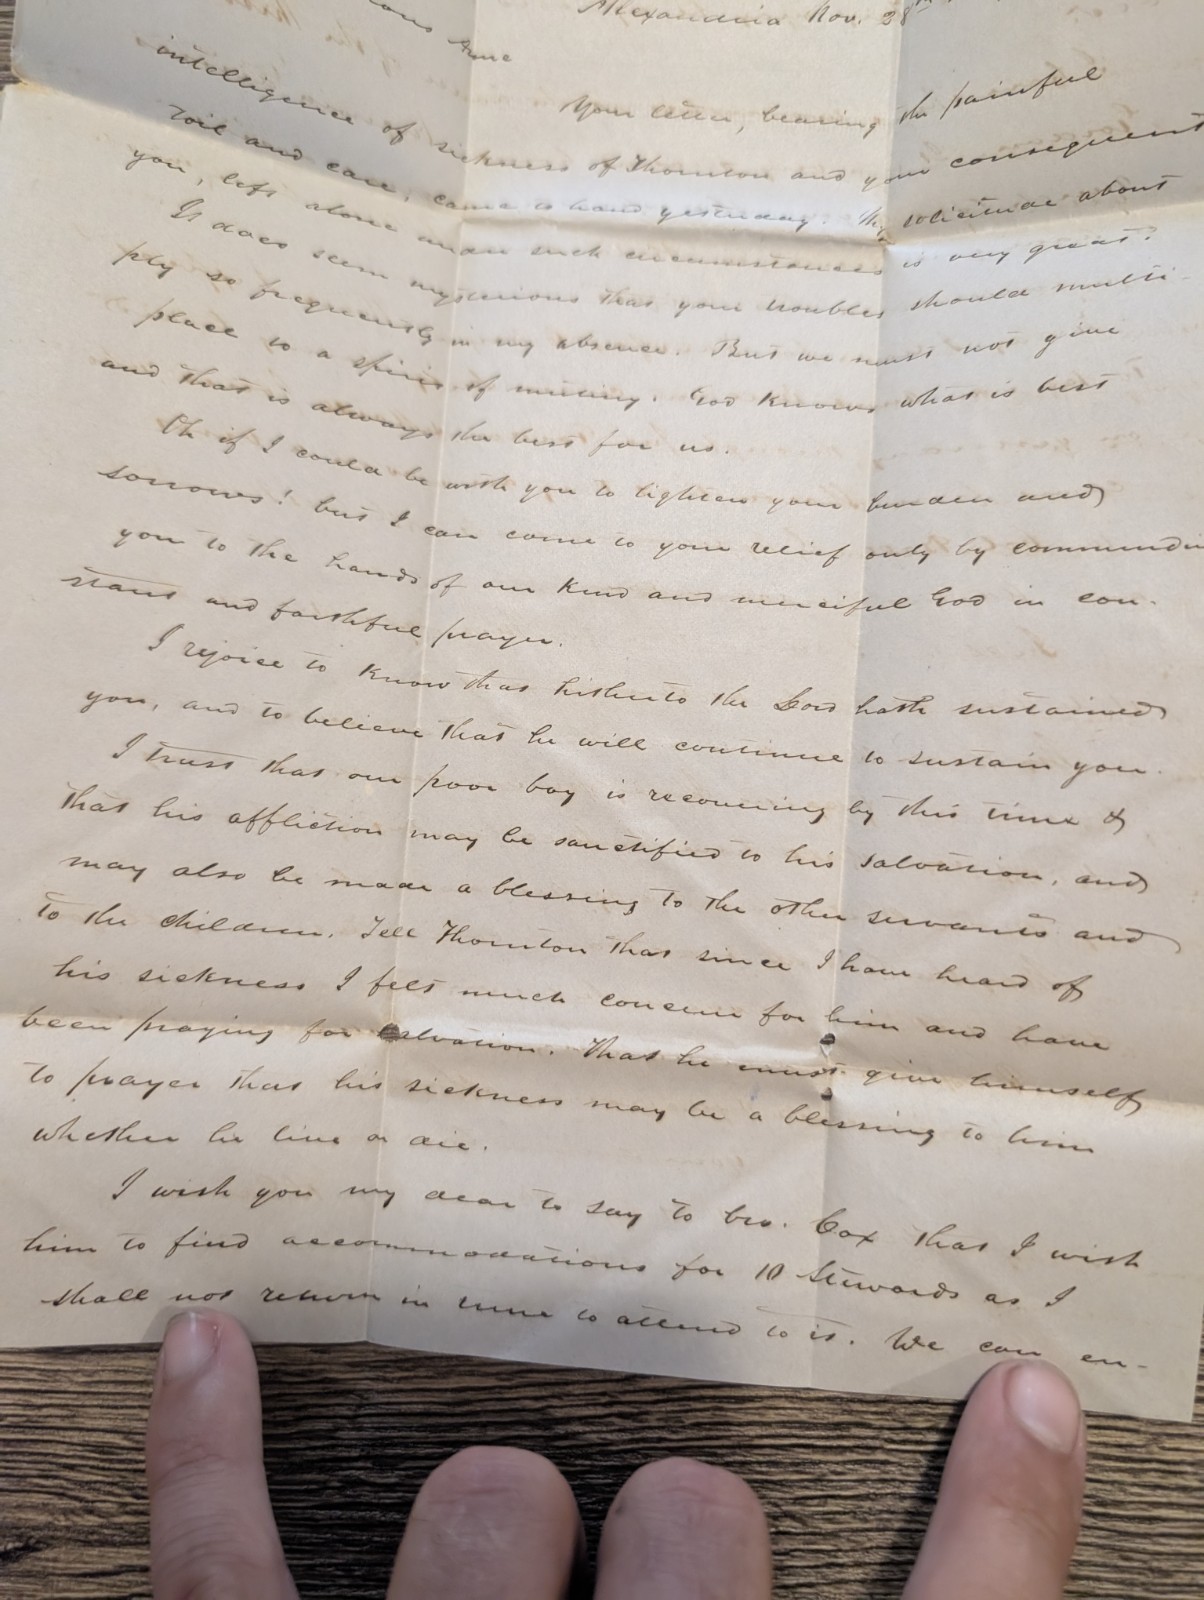 Alexandria Nov. 28th
Your letter, bearing the painful
intelligence of sickness of Thornton and your consequent
toil and care, came to hand yesterday. My solicitude about
you, left alone under such circumstances is very great.
It does seem mysterious that your troubles should multi-
ply so frequently in my absence. But we must not give
place to a spirit of mutiny. God knows what is best
and that is always the best for us.
Oh if I could be with you to lighten your burden and
sorrows! but I can come to your relief only by commendin
you to the hands of our kind and merciful God in con-
stant and faithful prayer.
I rejoice to know that hitherto the Lord hath sustained
you, and to believe that he will continue to sustain you.
I trust that our poor boy is recovering by this time &
that his affliction may be sanctified to his salvation, and
may also be made a blessing to the other servants and
to the children. Tell Thornton that since I have heard of
his sickness I felt much concern for him and have
been praying for salvation. That he must give himself
to prayer that his sickness may be a blessing to him
whether he live or die.
I wish you my dear to say to bro. Cox that I wish
him to find accommodations for 10 Stewards as I
shall not return in time to attend to it. We can en-